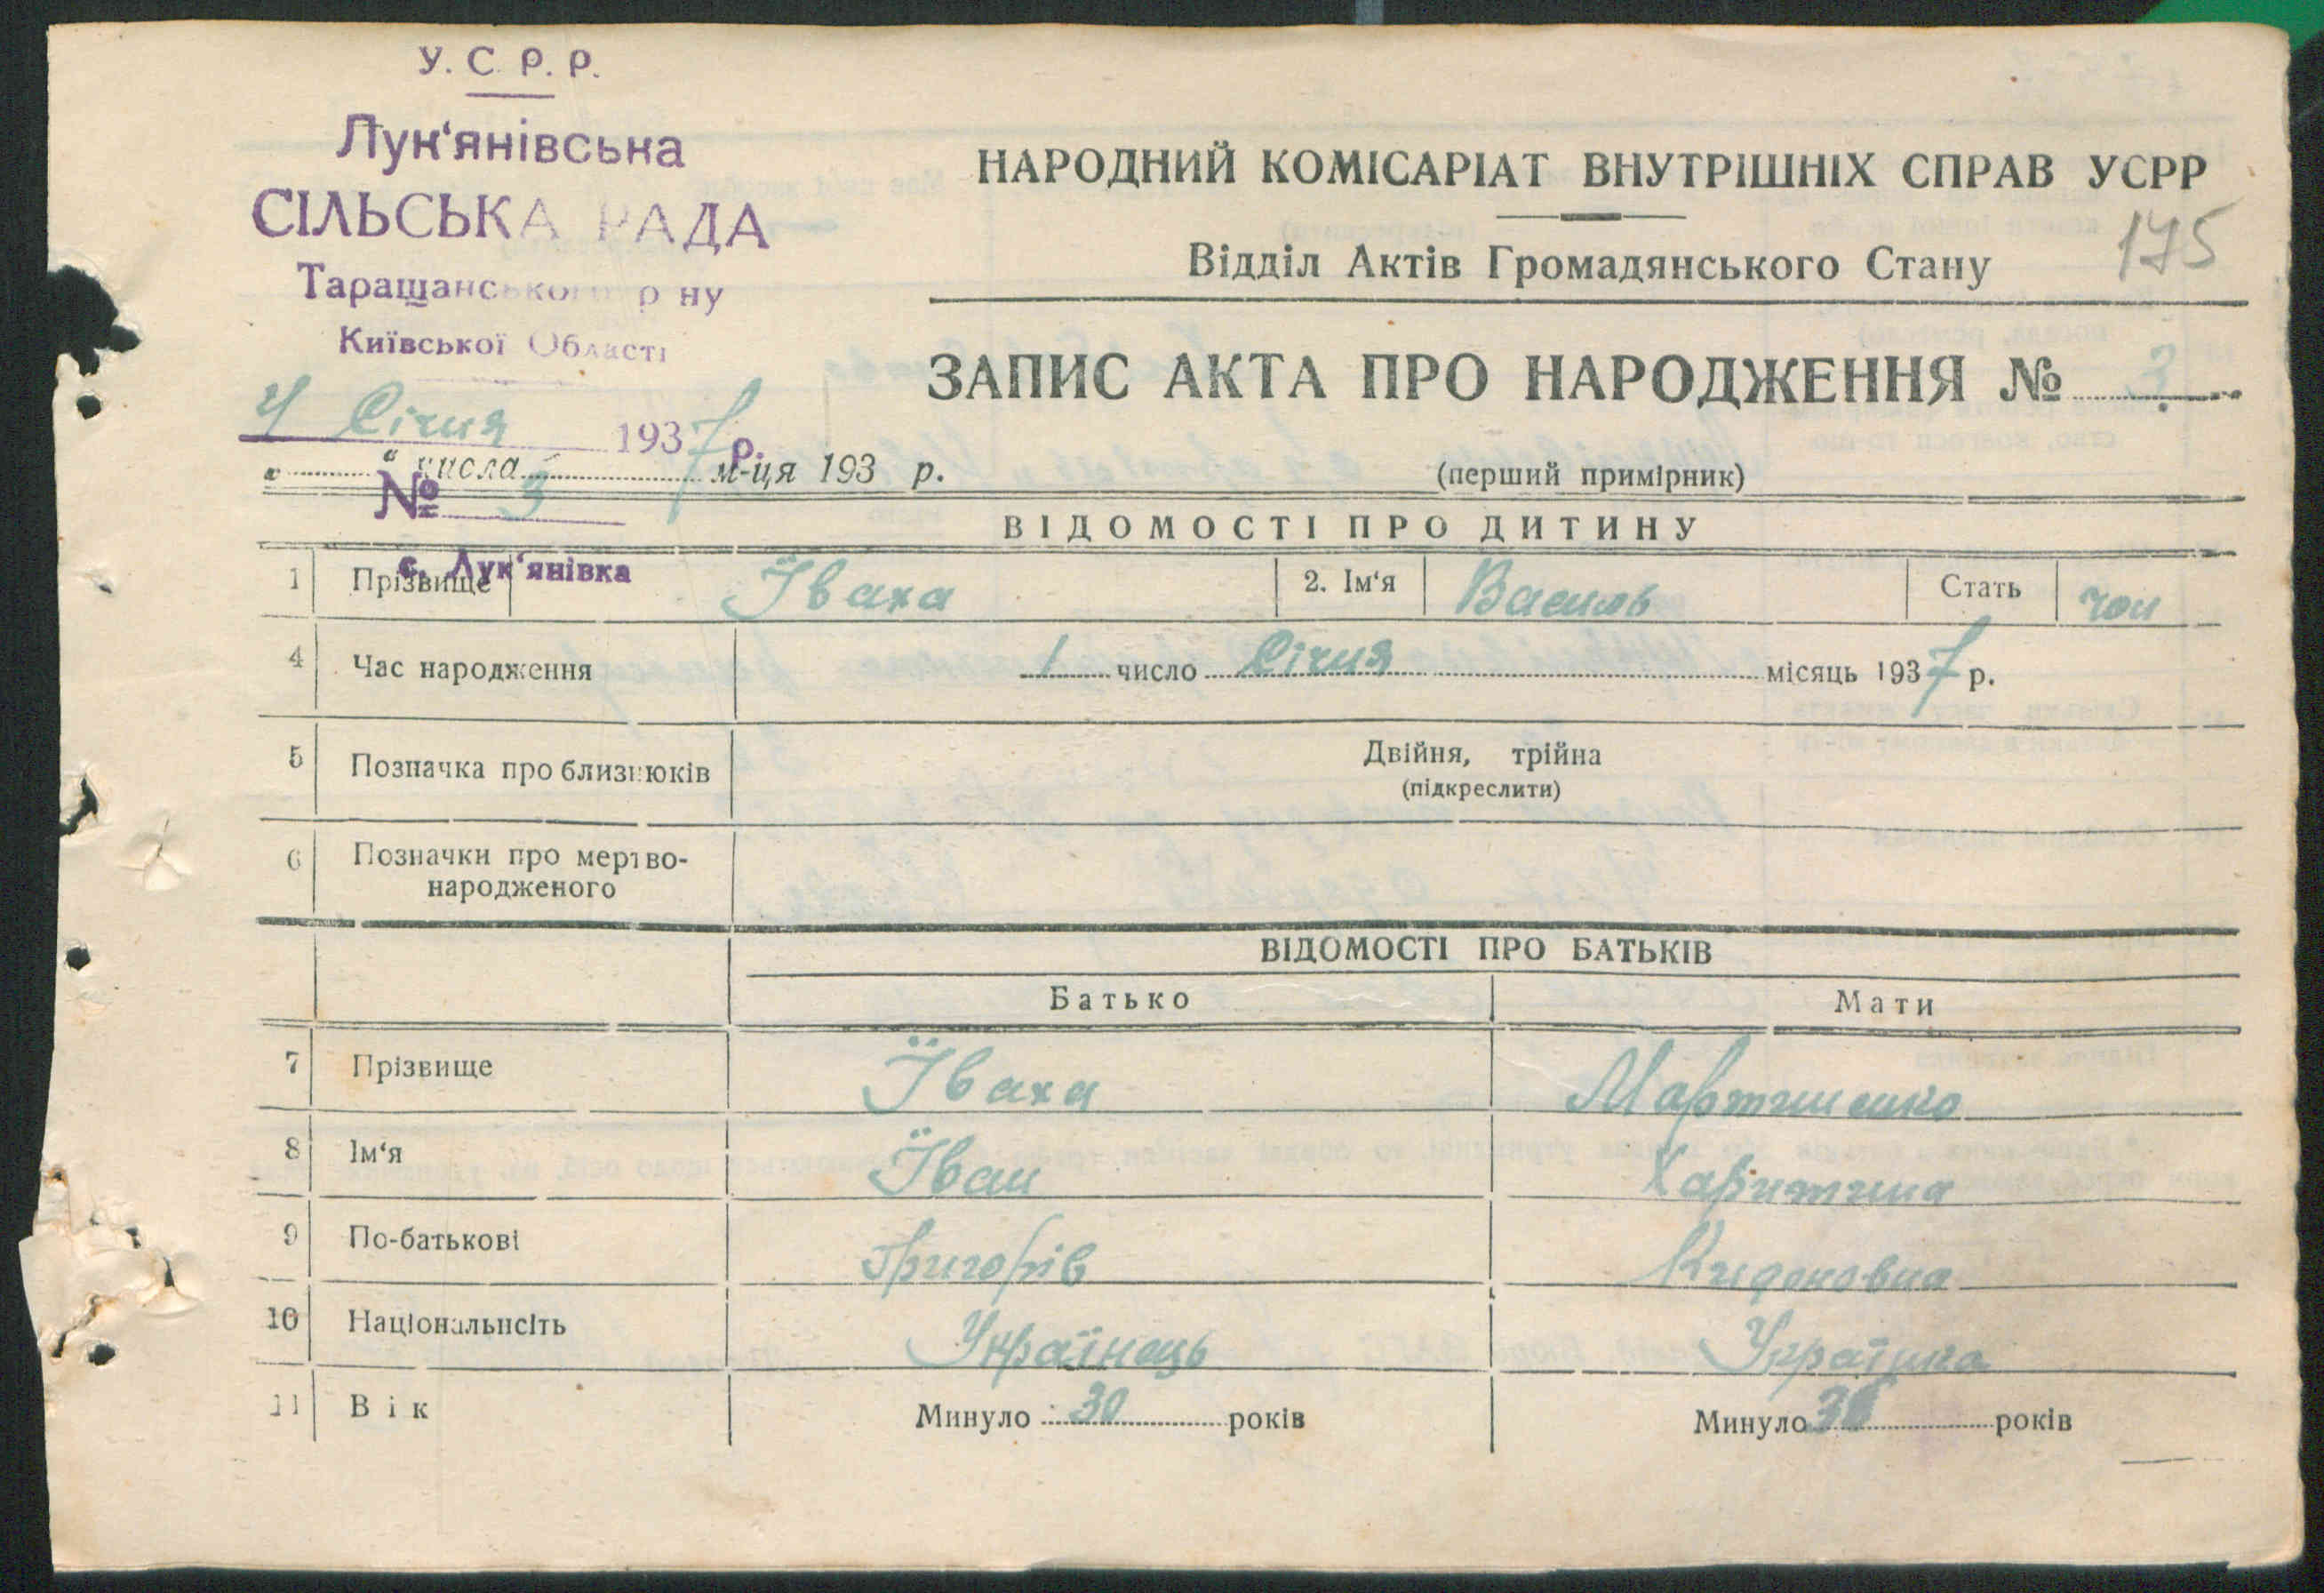 У. С. Р. Р.
Лук'янівська
СІЛЬСЬКА РАДА
Таращанського р ну
Київської Області
4 Січня 1937 р.
№ 3
с. Лук'янівка
НАРОДНИЙ КОМІСАРІАТ ВНУТРІШНІХ СПРАВ УСРР
175
Відділ Актів Громадянського Стану
ЗАПИС АКТА ПРО НАРОДЖЕННЯ № 3
„ “ числа м-ця 193 р.
(перший примірник)
ВІДОМОСТІ ПРО ДИТИНУ
1 Прізвище Їваха 2. Ім'я Василь Стать чол
4 Час народження 1 число Січня місяць 1937 р.
5 Позначка про близнюків Двійня, трійна
(підкреслити)
6 Позначки про мертво-
народженого
ВІДОМОСТІ ПРО БАТЬКІВ
Батько Мати
7 Прізвище Їваха Мартиненко
8 Ім'я Їван Харитина
9 По-батькові Григорів
10 Національнсіть Українець Українка
11 Вік Минуло 30 років Минуло років